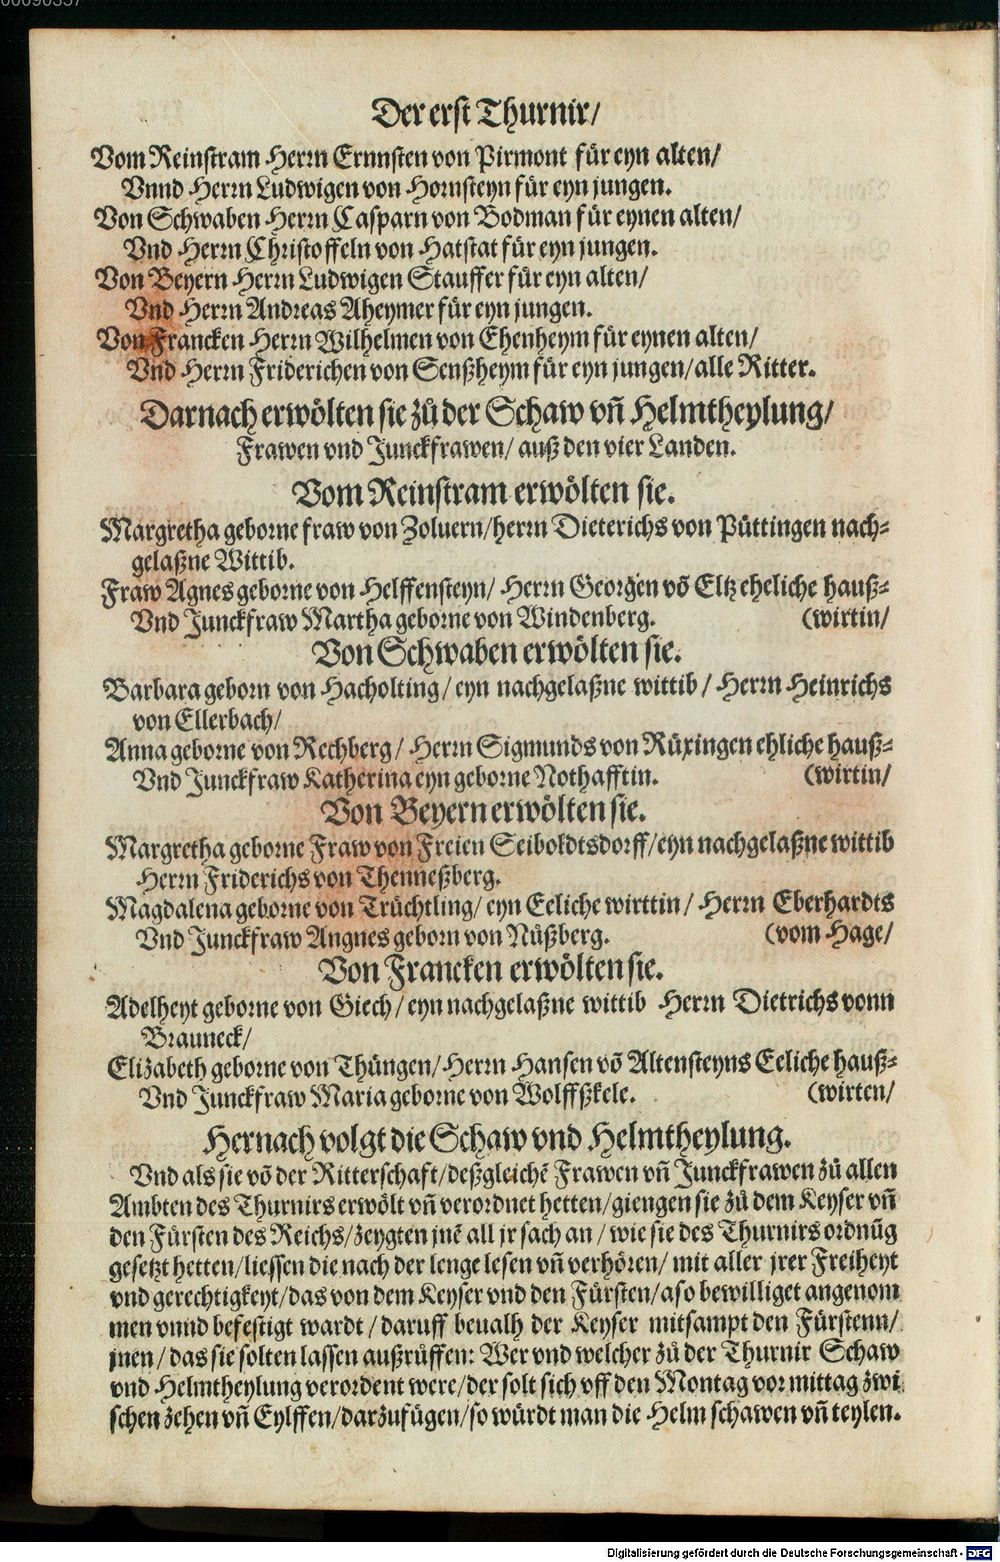 00090357
Der erst Thurnir/
Vom Reinstram Herrn Ernnsten von Pirmont für eyn alten/
Vnnd Herrn Ludwigen von Hornsteyn für eyn jungen.
Von Schwaben Herrn Casparn von Bodman für eynen alten/
Vnd Herrn Christoffeln von Hatstat für eyn jungen.
Von Beyern Herrn Ludwigen Stauffer für eyn alten/
Vnd Herrn Andreas Aheymer für eyn jungen.
Von Francken Herrn Wilhelmen von Ehenheym für eynen alten/
Vnd Herrn Friderichen von Senßheym für eyn jungen/alle Ritter.
Darnach erwölten sie zů der Schaw vñ Helmtheylung/
Frawen vnd Junckfrawen/ auß den vier Landen.
Vom Reinstram erwölten sie.
Margretha geborne fraw von Zoluern/herrn Dieterichs von Püttingen nach⸗
gelaßne Wittib.
Fraw Agnes geborne von Helffensteyn/ Herrn Georgen võ Eltz eheliche hauß⸗
Vnd Junckfraw Martha geborne von Windenberg. (wirtin/
Von Schwaben erwölten sie.
Barbara geborn von Hacholting/ eyn nachgelaßne wittib/ Herrn Heinrichs
von Ellerbach/
Anna geborne von Rechberg/ Herrn Sigmunds von Rüxingen ehliche hauß⸗
Vnd Junckfraw Katherina eyn geborne Nothafftin. (wirtin/
Von Beyern erwölten sie.
Margretha geborne Fraw von Freien Seiboldtsdorff/eyn nachgelaßne wittib
Herrn Friderichs von Thenneßberg.
Magdalena geborne von Trüchtling/ eyn Eeliche wirttin/ Herrn Eberhardts
Vnd Junckfraw Angnes geborn von Nüßberg. (vom Hage/
Von Francken erwölten sie.
Adelheyt geborne von Giech/ eyn nachgelaßne wittib Herrn Dietrichs vonn
Brauneck/
Elizabeth geborne von Thüngen/Herrn Hansen võ Altensteyns Eeliche hauß⸗
Vnd Junckfraw Maria geborne von Wolffßkele. (wirten/
Hernach volgt die Schaw vnd Helmtheylung.
Vnd als sie võ der Ritterschaft/deßgleichẽ Frawen vñ Junckfrawen zů allen
Ambten des Thurnirs erwölt vñ verordnet hetten/giengen sie zů dem Keyser vñ
den Fürsten des Reichs/zeygten jnẽ all jr sach an/ wie sie des Thurnirs ordnũg
gesetzt hetten/liessen die nach der lenge lesen vñ verhören/ mit aller jrer Freiheyt
vnd gerechtigkeyt/das von dem Keyser vnd den Fürsten/aso bewilliget angenom
men vnnd befestigt wardt/daruff beualh der Keyser mitsampt den Fürstenn/
jnen/ das sie solten lassen außrüffen: Wer vnd welcher zů der Thurnir Schaw
vnd Helmtheylung verordent were/der solt sich vff den Montag vor mittag zwi
schen zehen vñ Eylffen/darzufügen/so würdt man die Helm schawen vñ teylen.
Digitalisierung gefördert durch die Deutsche Forschungsgemeinschaft - DFG